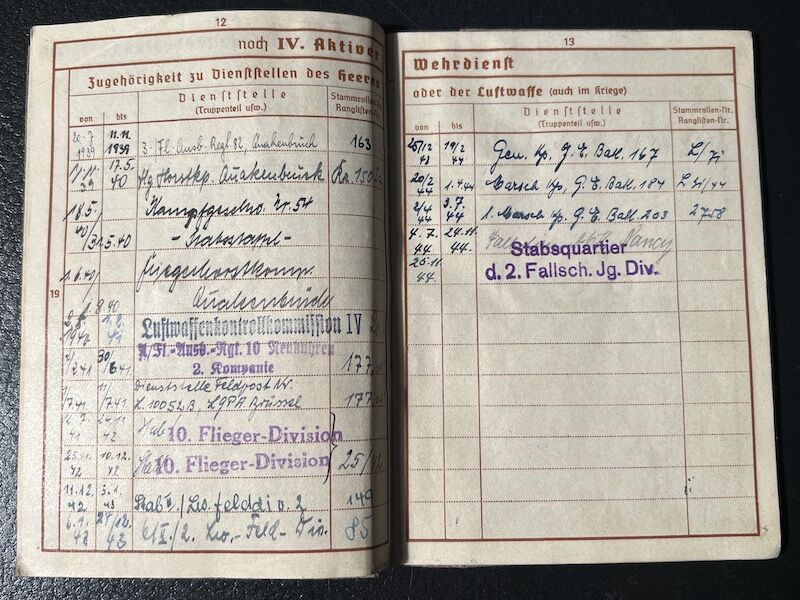 12
noch IV. Aktiver
Zugehörigkeit zu Dienststellen des Heeres
von bis
Dienststelle
(Truppenteil usw.)
Stammrollen-Nr.
Ranglisten-Nr.
20.7. 1939 11.11. 1939 3. Fl. Ausb. Regt. 82, Quakenbrück 163
11.11. 39 17.5. 40 Flg. Horstkp. Quakenbrück
18.5. 40 Kampfgeschw. Nr. 54
31.5.40 - Stabsstaffel -
1.6.40 Fliegerhorstkomp.
19 8 40 Quakenbrück
1940 41 Luftwaffenkontrollkommission IV
2/ 2 41 30/ 6 41 A/Fl.-Ausb.-Rgt. 10 Neukuhren 177
2. Kompanie
1/ 7 41 11/ 7 41 Dienststelle Feldpost Nr.
L 10052 B, LGPA Brüssel 177
41 24.11. 42 10. Flieger-Division
25.11. 42 10.12. 42 Stab 10. Flieger-Division 25/42
11.12. 42 3.1. 43 Stab /Lw. felddiv. 2 149
6.1. 43 43 /2. Lw.-Feld-Div. 85
13
Wehrdienst
oder der Luftwaffe (auch im Kriege)
von bis
Dienststelle
(Truppenteil usw.)
Stammrollen-Nr.
Ranglisten-Nr.
25/12 43 19/2 44 Gen. Kp. G. E. Batl. 167
20/2 44 1.4.44 Marsch Kp. G. E. Batl. 184
2/4 44 3.7. 44 1. Marsch Kp. G. E. Batl. 203 2758
4.7. 44 24.11. 44 Nancy
25.11. 44 Stabsquartier
d. 2. Fallsch. Jg. Div.